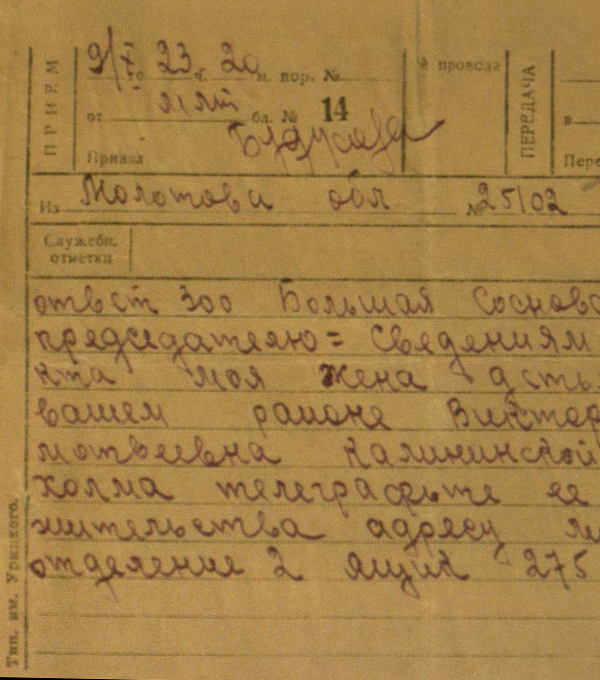 ПРИЕМ
9/X го 23 ч. 20 м. пор. №
№ провода
ПЕРЕДАЧА
от ММТ бл. № 14
в
Принял
Пере
Из Молотова обл. № 25/02
Служебн. отметки
ответ 300 Большая Соснов
председателю = Сведениям
кта моя жена деть
вашем районе Виктор
матвеевна калининской
холма телеграфьте ее
жительства адресу
отделение 2 ящик 275
Тип. им. Урицкого.